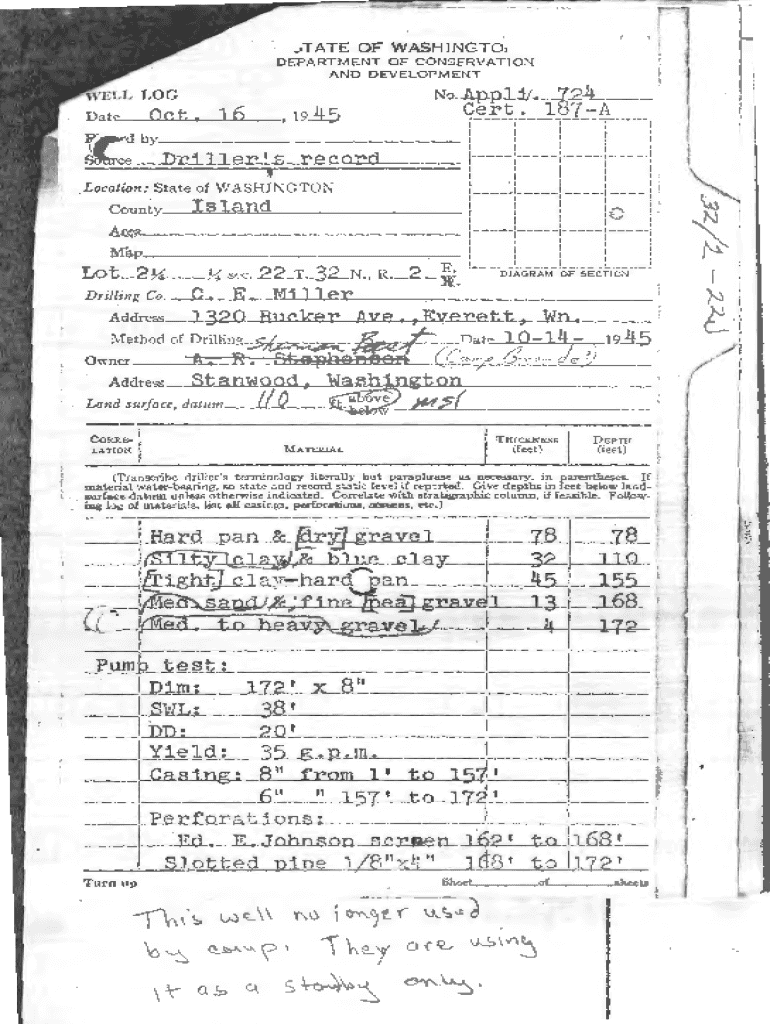 TATE OF WASHINGTO
DEPARTMENT OF CONSERVATION
AND DEVELOPMENT
WELL LOG
No. Appli. 724
Cert. 187-A
Date Oct. 16, 1945
by
Source Driller's record
Location: State of WASHINGTON
County Island
Area
Map
Lot 2¼ ¼ sec. 22 T. 32 N., R. 2 E. W.
DIAGRAM OF SECTION
Drilling Co. C. E. Miller
Address 1320 Rucker Ave., Everett, Wn.
Method of Drilling Date 10-14- 1945
Owner A. R. Stephenson (Camp
Address Stanwood, Washington
Land surface, datum 110 ft. above below msl
CORRE-LATION MATERIAL THICKNESS (feet) DEPTH (feet)
(Transcribe driller's terminology literally but paraphrase as necessary, in parentheses. If
material water-bearing, so state and record static level if reported. Give depths in feet below land-
surface datum unless otherwise indicated. Correlate with stratigraphic column, if feasible. Follow-
ing log of materials, list all casings, perforations, screens, etc.)
Hard pan & dry gravel 78 78
Silty clay & blue clay 32 110
Tight clay-hard pan 45 155
Med. sand & fine pea gravel 13 168
Med. to heavy gravel 4 172
Pump test:
Dim: 172' x 8"
SWL: 38'
DD: 20'
Yield: 35 g.p.m.
Casing: 8" from 1' to 157'
6" " 157' to 172'
Perforations:
Ed. E. Johnson screen 162' to 168'
Slotted pipe 1/8"x4" 168' to 172'
Turn up Sheet of sheets
This well no longer used
by camp. They are using
it as a standby only.
32/2-22J